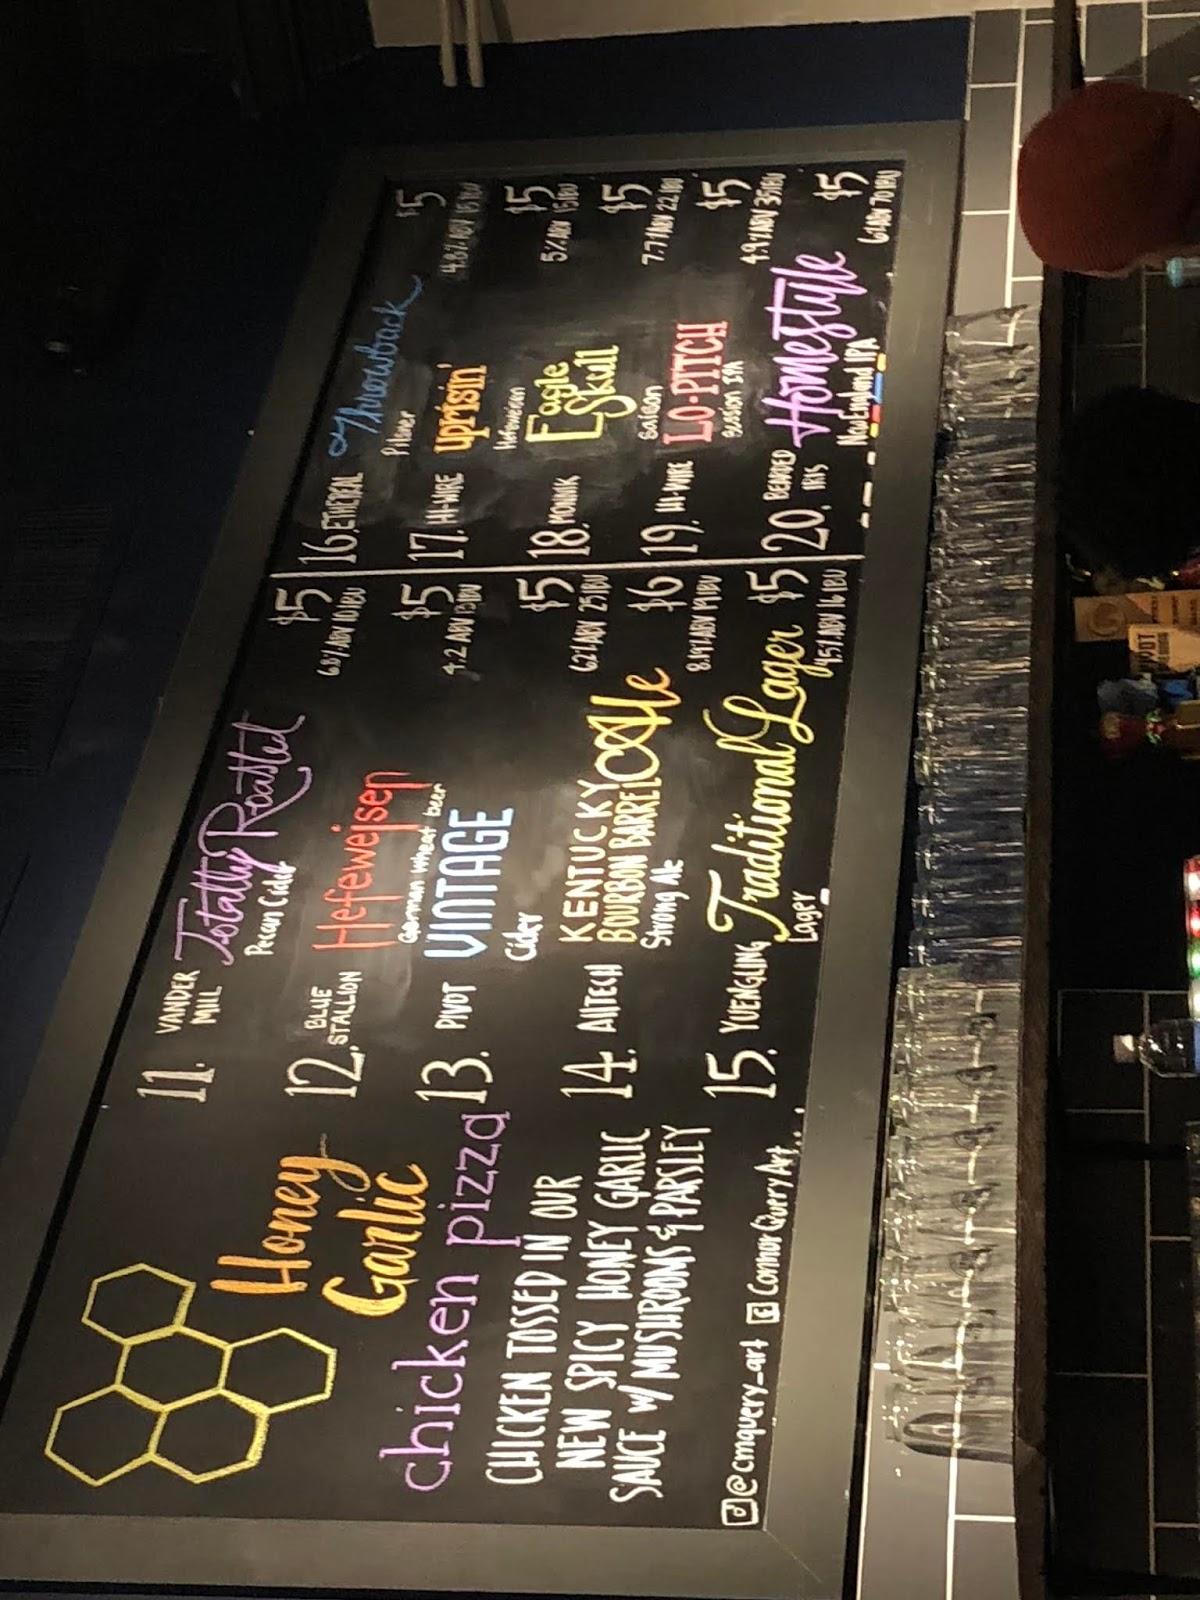 Honey
Garlic
chicken pizza
CHICKEN TOSSED IN OUR
NEW SPICY HONEY GARLIC
SAUCE W/ MUSHROOMS & PARSLEY
@cmquery_art Connor Query Art...
11. VANDER MILL Totally Roasted $5
Pecan Cider 6.8% ABV 10 IBU
12. BLUE STALLION Hefeweisen $5
German wheat beer 4.2 ABV 13 IBU
13. PIVOT VINTAGE $5
Cider 6.2% ABV 25 IBU
14. Alltech KENTUCKY BOURBON BARREL Ale $6
Strong Ale 8.19% ABV 19 IBU
15. YUENGLING Traditional Lager $5
Lager 4.5% ABV 16 IBU
16. ETHEREAL Throwback $5
Pilsner 4.8% ABV 15 IBU
17. HI-WIRE uprisin' $5
Hefeweizen 5% ABV 15 IBU
18. MONNIK Eagle Skull $5
Saison 7.7% ABV 22 IBU
19. HI-WIRE LO-PITCH $5
Session IPA 4.9% ABV 35 IBU
20. BEARDED IRIS Homestyle $5
New England IPA 6% ABV 70 IBU